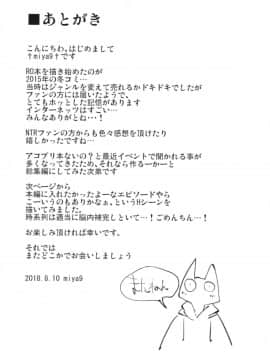 ■あとがき
こんにちわ。はじめまして
†miya9†です
RO本を描き始めたのが
2015年の冬コミ…
当時はジャンルを変えて売れるかドキドキでしたが
ファンの方には届いたようで、
とてもホッとした記憶があります
インターネッツはすごい…
みんなありがとね…！
NTRファンの方からも色々感想を頂けたり
嬉しかったですね…
アコプリ本ないの？と最近イベントで聞かれる事が
多くなってきたため、それなら作るーかーと
総集編にしてみた次第です
次ページから
本編に入れたかったよーなエピソードやら
こーいうのもありかなぁ。というHシーンを
描いてみました。
時系列は適当に脳内補完しといて…！ごめんちん…！
お楽しみ頂ければ幸いです。
それでは
またどこかでお会いしましょう
2018.6.10 miya9